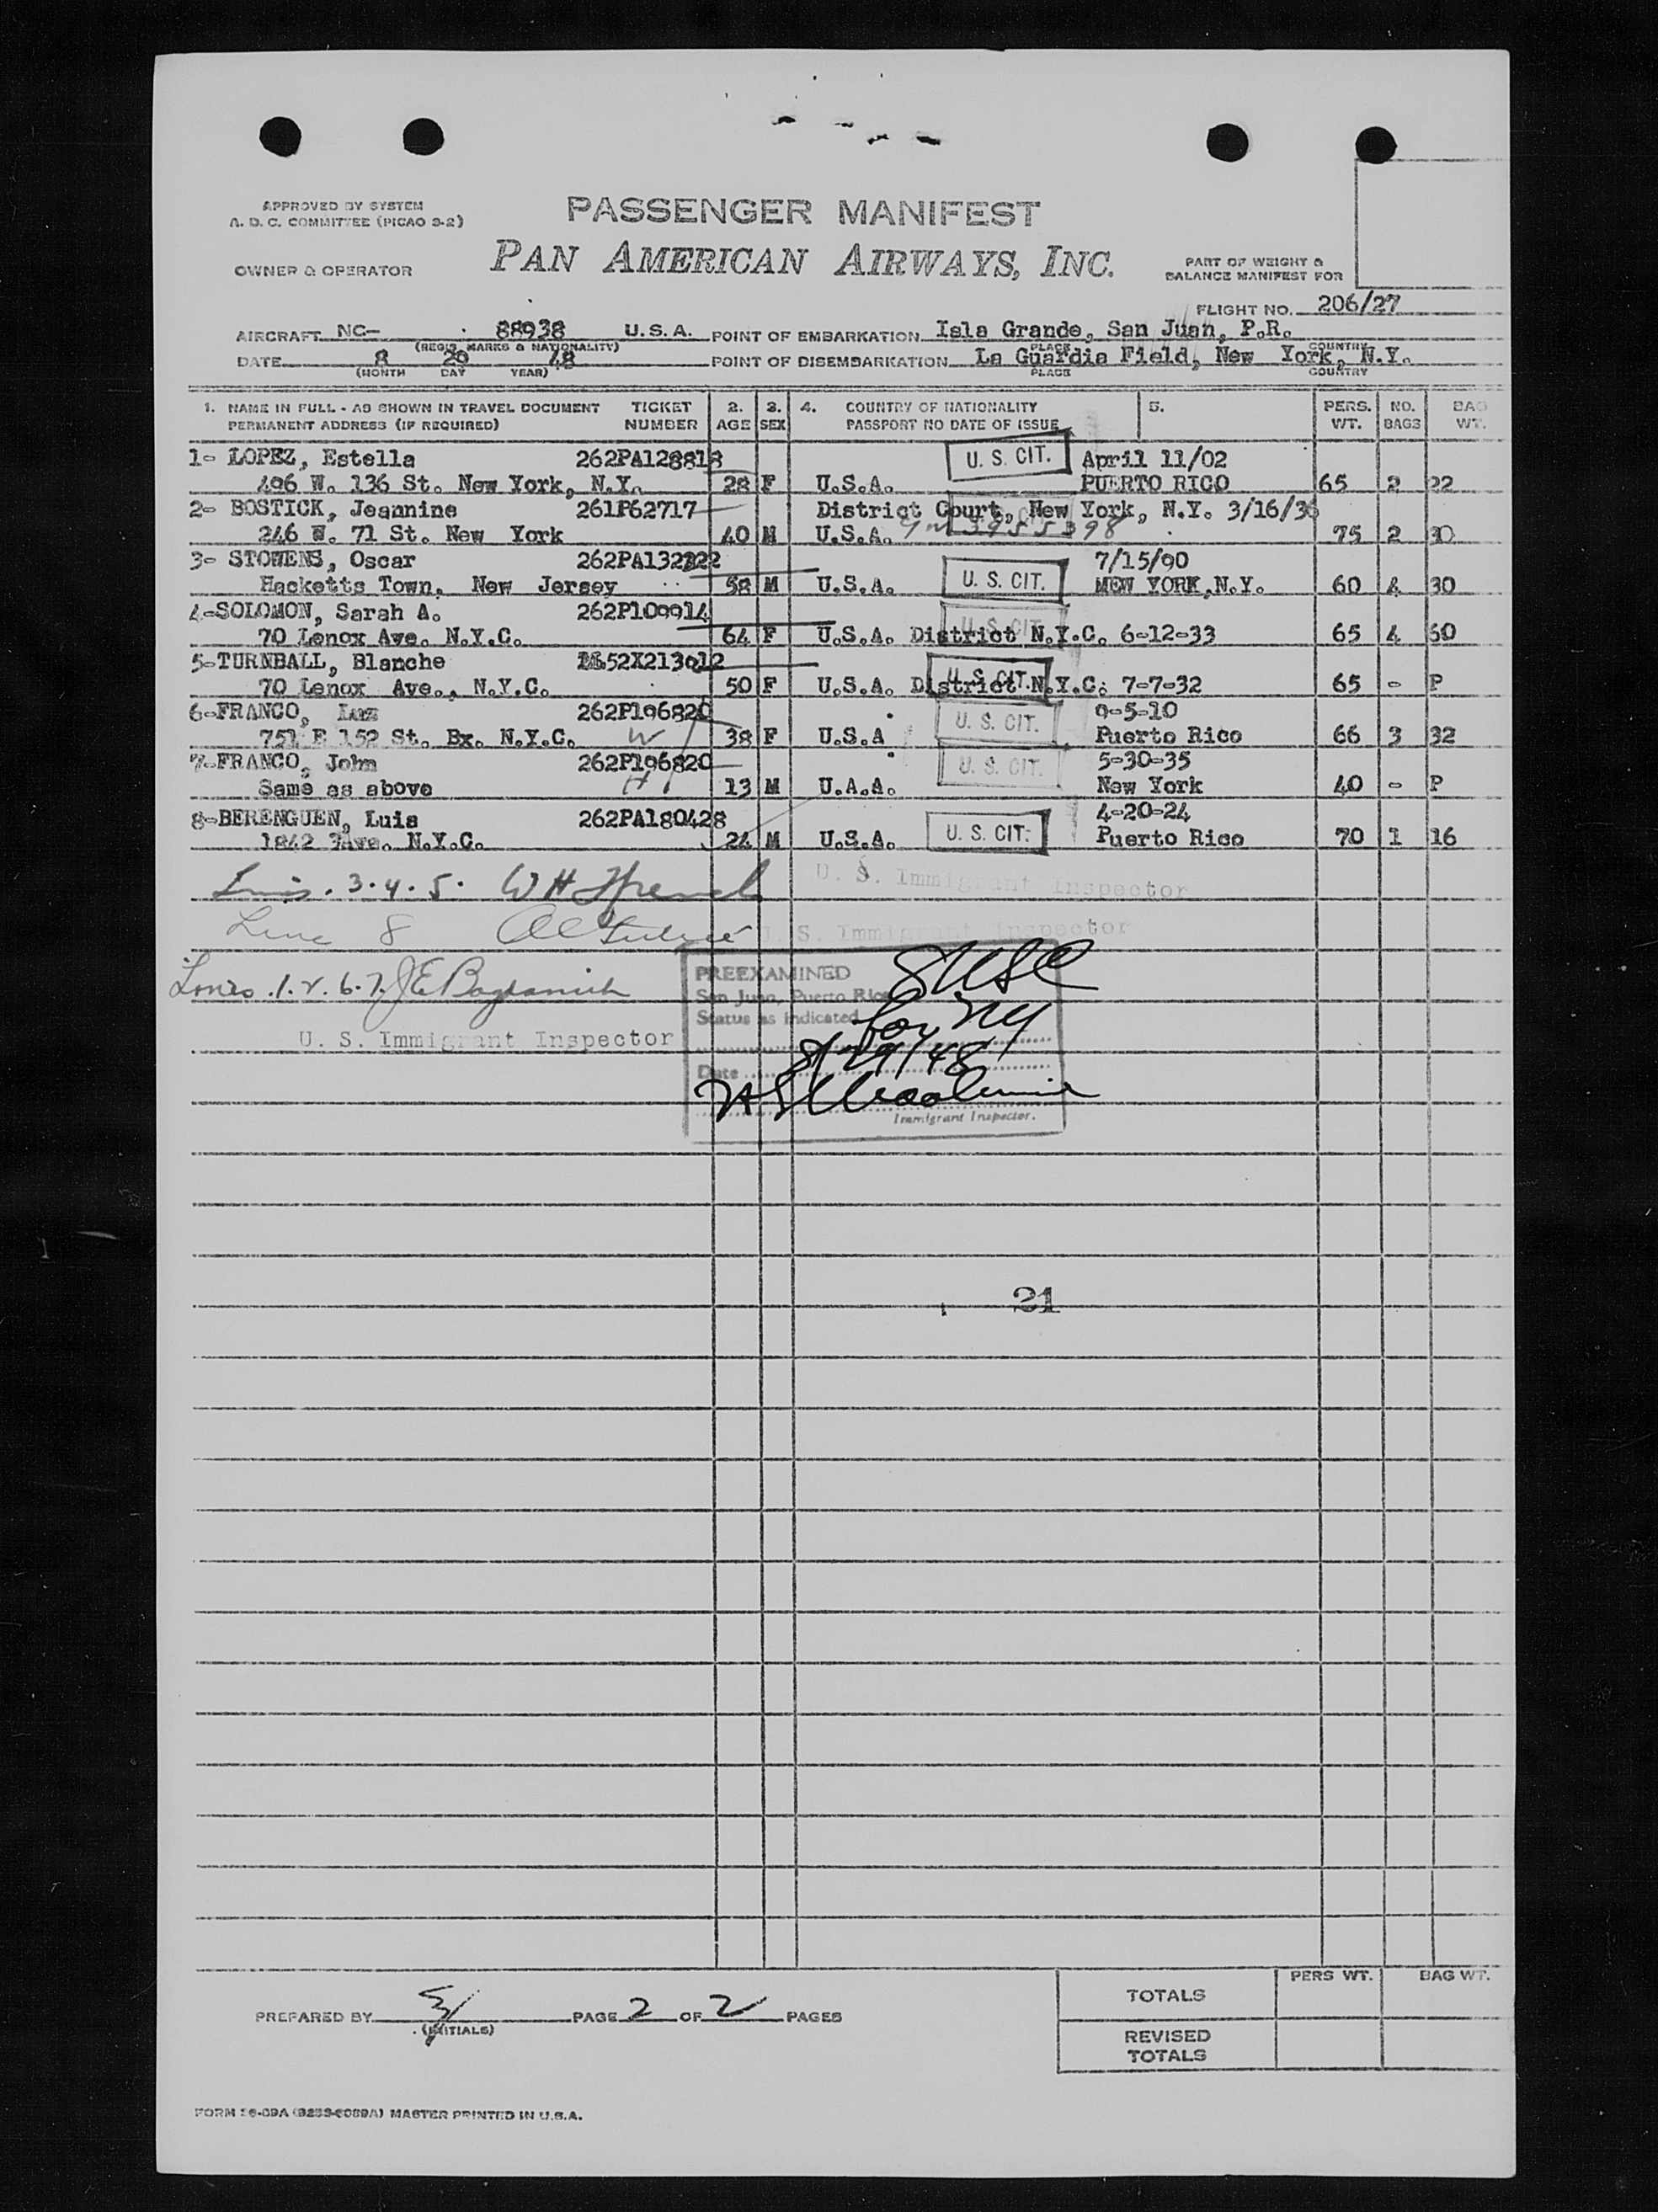 APPROVED BY SYSTEM
A. D. C. COMMITTEE (PICAO 3-2)
PASSENGER MANIFEST
PAN AMERICAN AIRWAYS, INC.
OWNER & OPERATOR
PART OF WEIGHT &
BALANCE MANIFEST FOR
FLIGHT NO. 206/27
AIRCRAFT NC- 88938 U.S.A. POINT OF EMBARKATION Isla Grande, San Juan, P.R.
(REGIS. MARKS & NATIONALITY) PLACE COUNTRY
DATE 8 29 48 POINT OF DISEMBARKATION La Guardia Field, New York, N.Y.
(MONTH DAY YEAR) PLACE COUNTRY
1. NAME IN FULL - AS SHOWN IN TRAVEL DOCUMENT TICKET 2. 3. 4. COUNTRY OF NATIONALITY 5. PERS. NO. BAG
PERMANENT ADDRESS (IF REQUIRED) NUMBER AGE SEX PASSPORT NO DATE OF ISSUE WT. BAGS WT.
1- LOPEZ, Estella 262PA128818 U. S. CIT. April 11/02
496 W. 136 St. New York, N.Y. 28 F U.S.A. PUERTO RICO 65 2 22
2- BOSTICK, Jeannine 261P62717 District Court, New York, N.Y. 3/16/36
246 W. 71 St. New York 40 M U.S.A. 3955398 75 2 30
3- STOWENS, Oscar 262PA132222 7/15/90
Hacketts Town, New Jersey 58 M U.S.A. U. S. CIT. NEW YORK,N.Y. 60 4 30
4-SOLOMON, Sarah A. 262P109914 U. S. CIT.
70 Lenox Ave. N.Y.C. 64 F U.S.A. District N.Y.C. 6-12-33 65 4 60
5-TURNBALL, Blanche 52X213012
70 Lenox Ave., N.Y.C. 50 F U.S.A. District N.Y.C. 7-7-32 U. S. CIT. 65 - P
6-FRANCO, Luz 262P196820 U. S. CIT. 9-5-10
751 E 152 St. Bx. N.Y.C. W 38 F U.S.A Puerto Rico 66 3 32
7-FRANCO, John 262P196820 U. S. CIT. 5-30-35
Same as above H 13 M U.A.A. New York 40 - P
8-BERENGUEN, Luis 262PA180428 4-20-24
1842 3Ave. N.Y.C. 24 M U.S.A. U. S. CIT. Puerto Rico 70 1 16
3.4.5. W H French
U. S. Immigrant Inspector
Line 8
U. S. Immigrant Inspector
Lines 1.2.6.7. J E
U. S. Immigrant Inspector
PREEXAMINED
San Juan, Puerto Rico
Status as indicated
USC
for NY
Date 8/29/48
Immigrant Inspector.
21
PREPARED BY PAGE 2 OF 2 PAGES
(INITIALS)
PERS WT. BAG WT.
TOTALS
REVISED
TOTALS
MASTER PRINTED IN U.S.A.